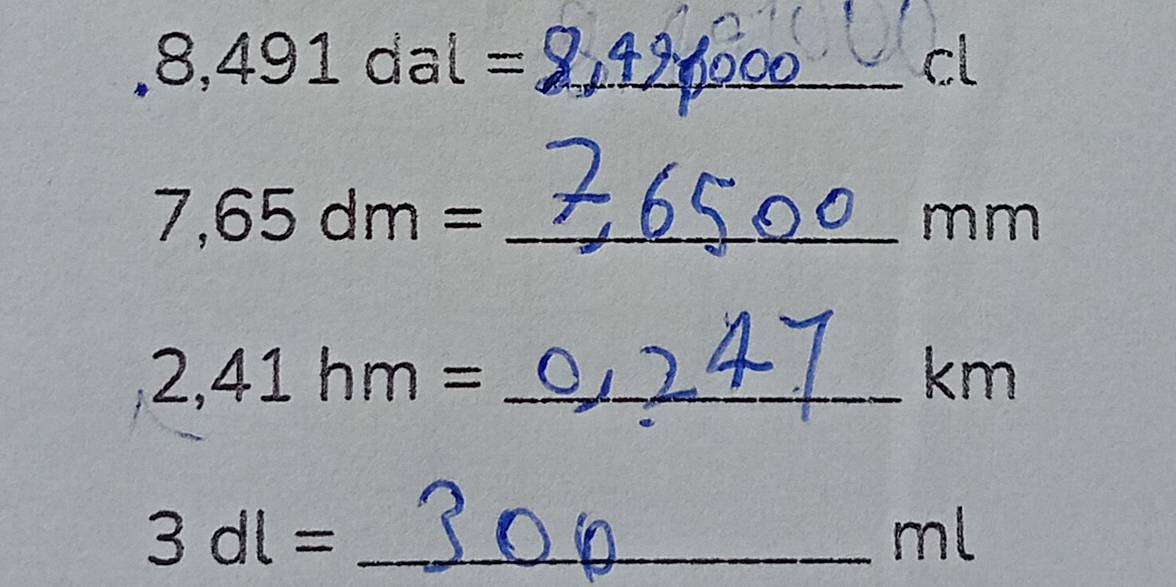 8,491 dal = 8,491000 cl
7,65 dm = 7,6500 mm
2,41 hm = 0,247 km
3 dl = 300 ml